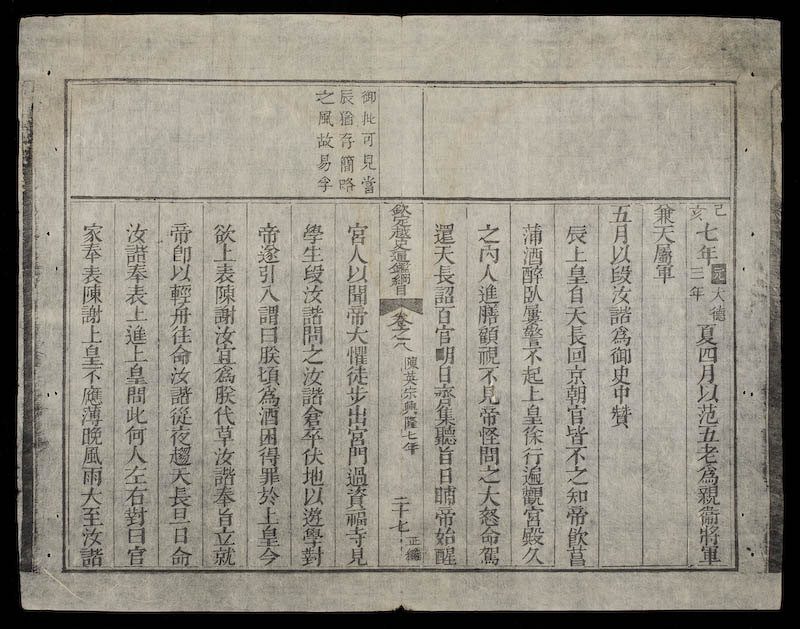 御批可見當
辰猶存簡略
之風故易孚
己亥七年元大德三年夏四月以范五老爲親衞將軍
兼天屬軍
五月以段汝諧爲御史中贊
辰上皇自天長回京朝官皆不之知帝飮菖
蒲酒醉臥屢警不起上皇徐行遍觀宮殿久
之內人進膳顧視不見帝怪問之大怒命駕
還天長詔百官明日齊集聽旨日晡帝始醒
欽定越史通鑑綱目 卷之八 陳英宗興隆七年 二十七 正編
宮人以聞帝大懼徒步出宮門過資福寺見
學生段汝諧問之汝諧倉卒伏地以遊學對
帝遂引入謂曰朕頃爲酒困得罪於上皇今
欲上表陳謝汝宜爲朕代草汝諧奉旨立就
帝卽以輕舟往命汝諧從夜趨天長旦日命
汝諧奉表上進上皇問此何人左右對曰官
家奉表陳謝上皇不應薄晚風雨大至汝諧